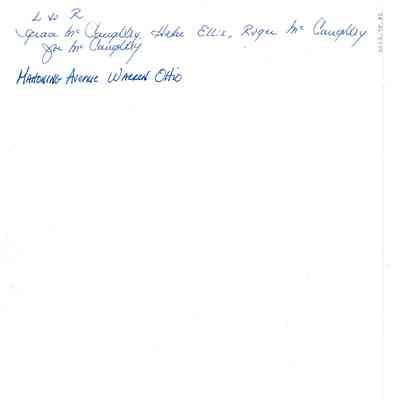 L to R
Grace Mc Caughtry, Hake Ellis, Roger Mc Caughtry
Joe Mc Caughtry
MAHONING AVENUE WARREN OHIO